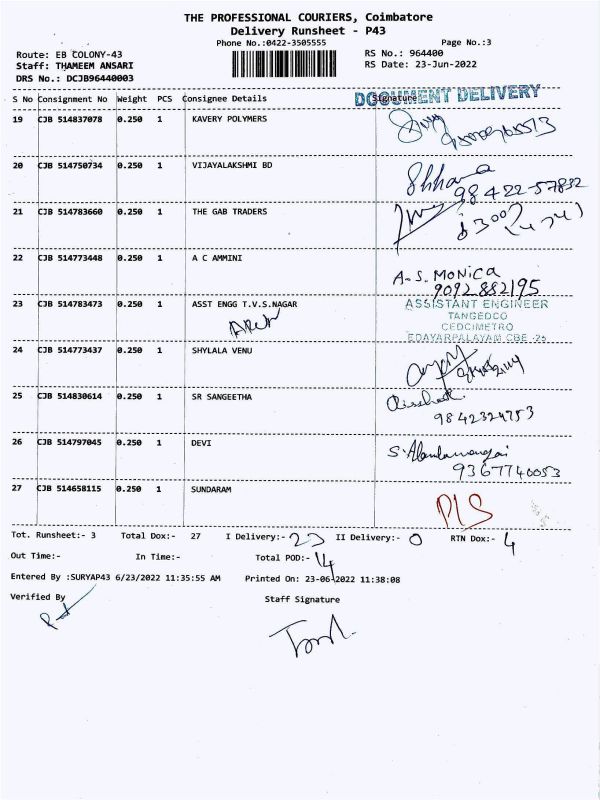 THE PROFESSIONAL COURIERS, Coimbatore
Delivery Runsheet - P43
Phone No.:0422-3505555 Page No.:3
Route: EB COLONY-43 RS No.: 964400
Staff: THAMEEM ANSARI RS Date: 23-Jun-2022
DRS No.: DCJB96440003
DOCUMENT DELIVERY
S No Consignment No Weight PCS Consignee Details Signature
19 CJB 514837078 0.250 1 KAVERY POLYMERS
20 CJB 514750734 0.250 1 VIJAYALAKSHMI BD
98422-57832
21 CJB 514783660 0.250 1 THE GAB TRADERS
22 CJB 514773448 0.250 1 A C AMMINI
A.S. MONICA
9092882195
23 CJB 514783473 0.250 1 ASST ENGG T.V.S.NAGAR
ASSISTANT ENGINEER
TANGEDCO
CEDC/METRO
EDAYARPALAYAM CBE -25
24 CJB 514773437 0.250 1 SHYLALA VENU
25 CJB 514830614 0.250 1 SR SANGEETHA
9842324753
26 CJB 514797045 0.250 1 DEVI
9367740053
27 CJB 514658115 0.250 1 SUNDARAM
P/S
Tot. Runsheet:- 3 Total Dox:- 27 I Delivery:- 23 II Delivery:- 0 RTN Dox:- 4
Out Time:- In Time:- Total POD:- 14
Entered By :SURYAP43 6/23/2022 11:35:55 AM Printed On: 23-06-2022 11:38:08
Verified By Staff Signature